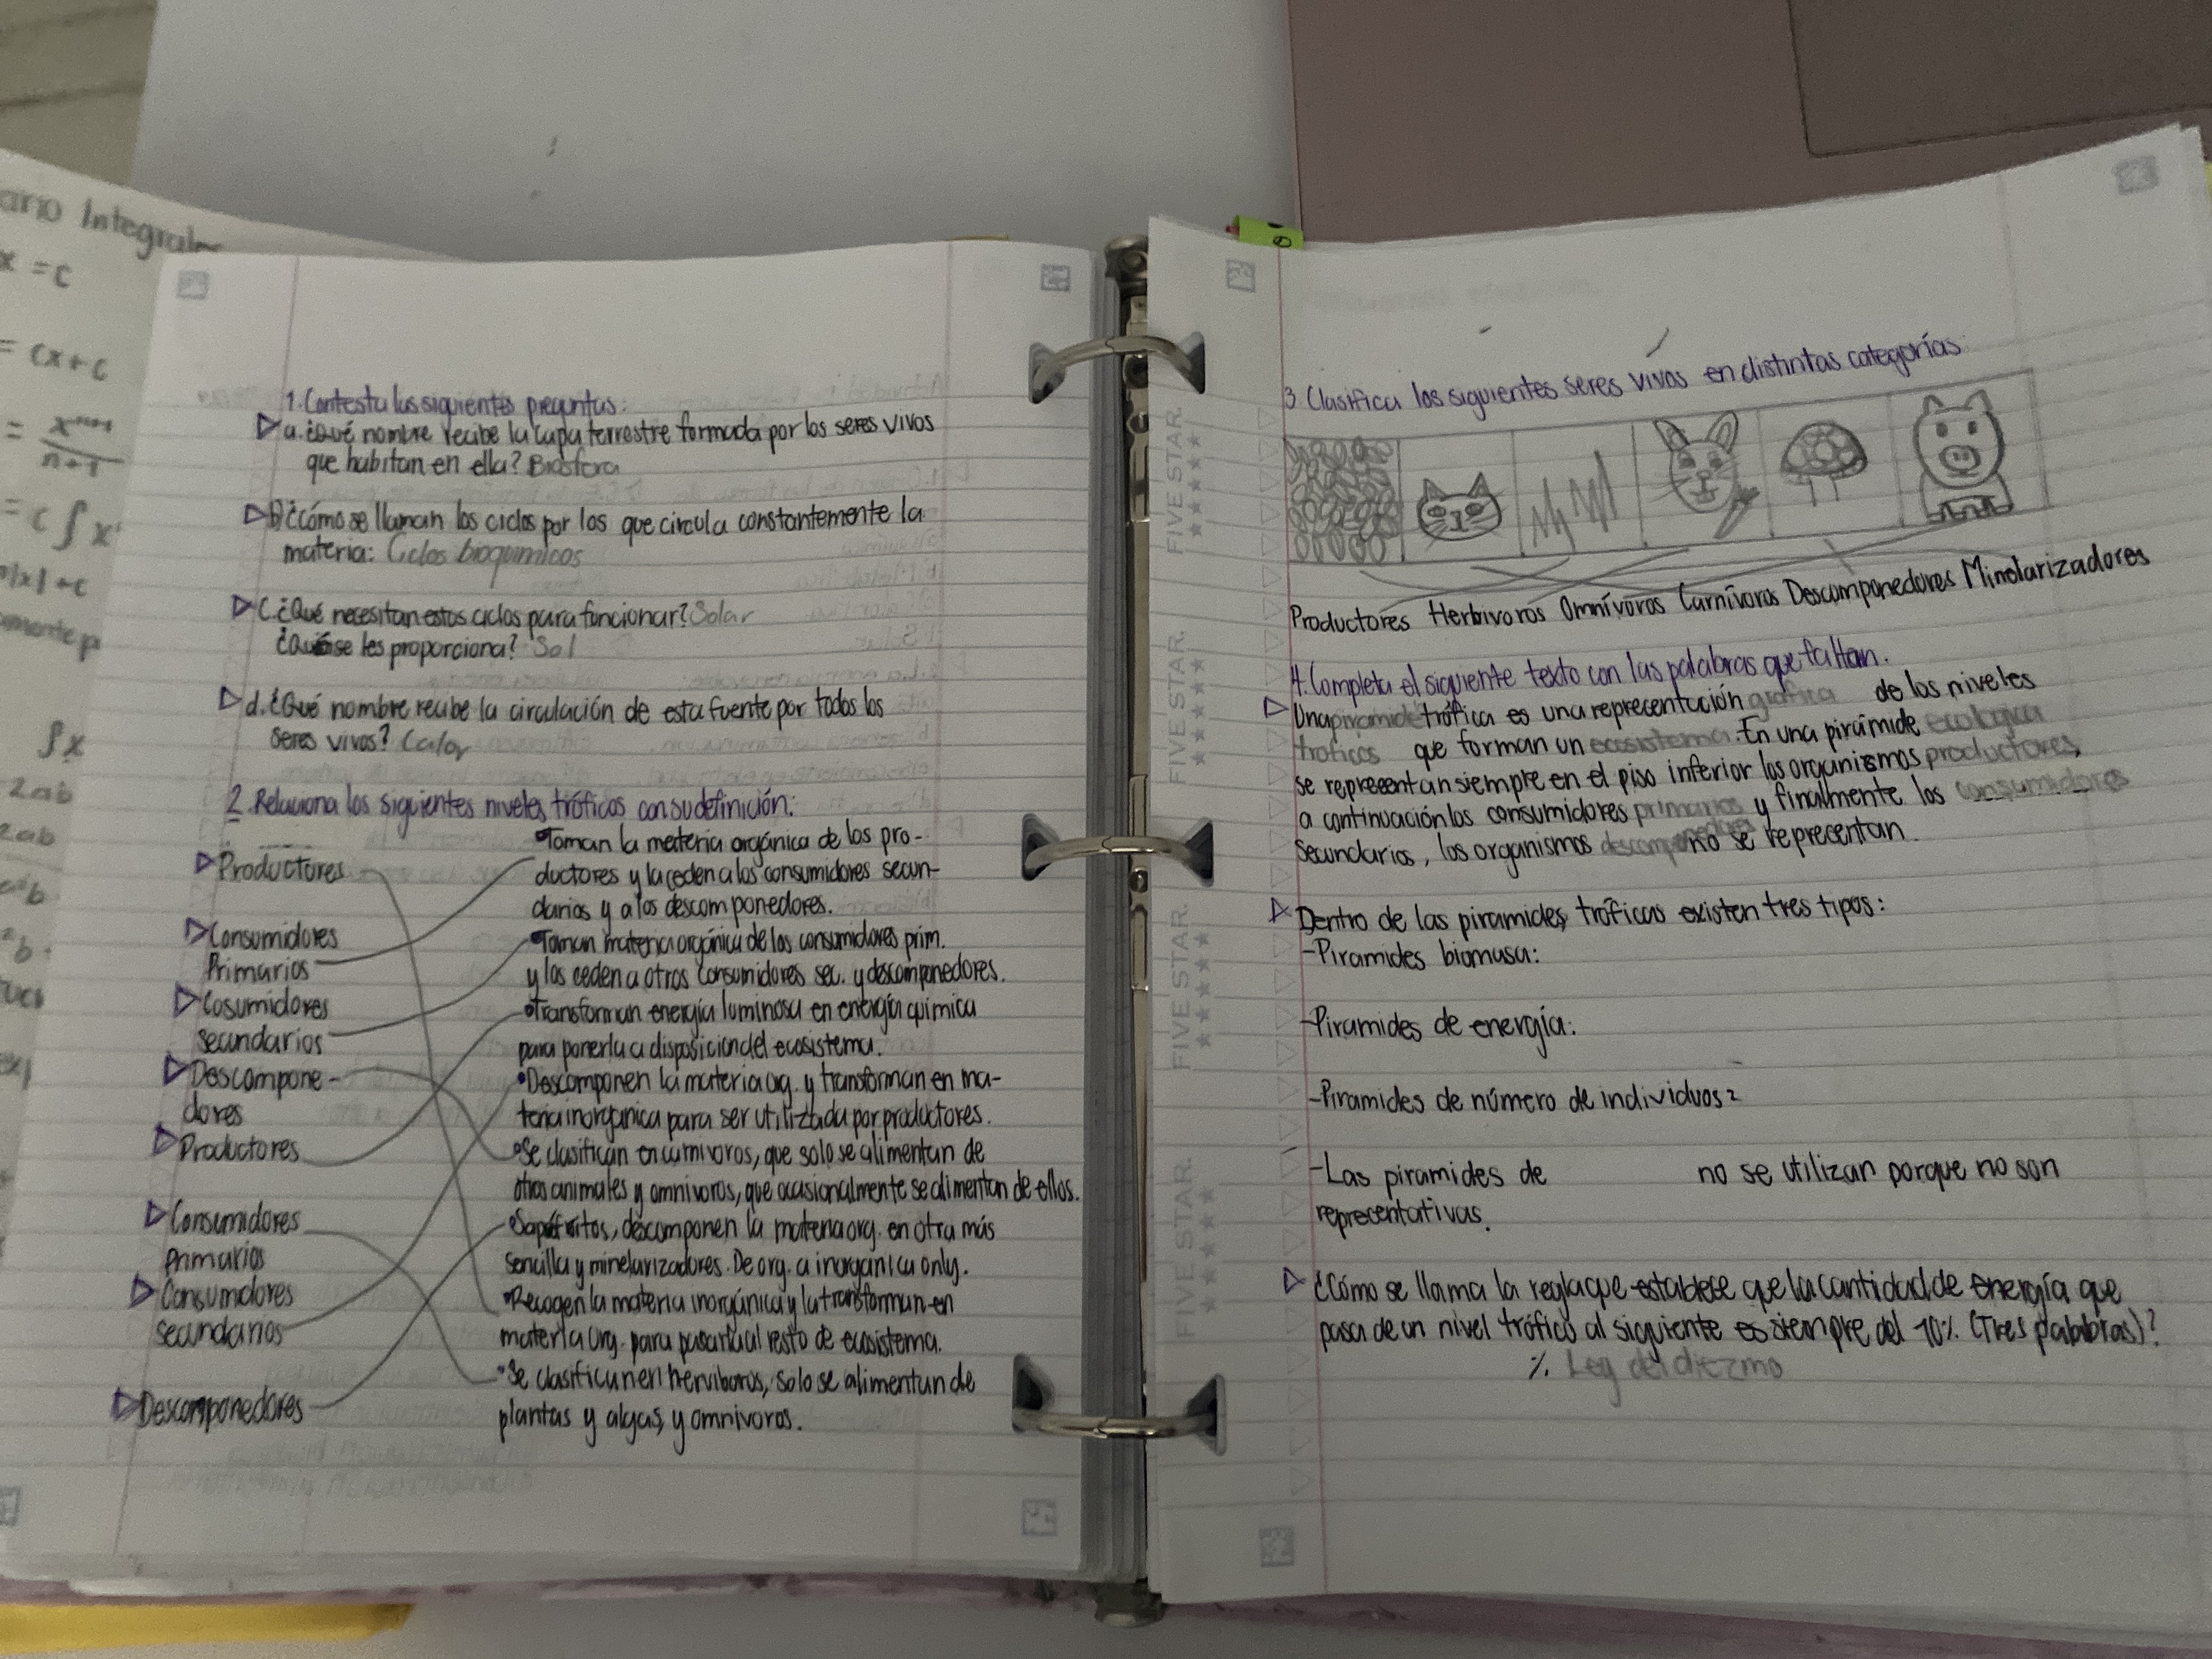 ario Integrales
x = c
= cx + c
= x^n+1
n+1
= c ∫ x
|x| + c
∫x
2ab
2ab
1. Contesta las siguientes preguntas:
a. ¿Qué nombre recibe la capa terrestre formada por los seres vivos
que habitan en ella? Biosfera
b) ¿Cómo se llaman los ciclos por los que circula constantemente la
materia: Ciclos bioquimicos
C. ¿Qué necesitan estos ciclos para funcionar? Solar
se les proporciona? Sol
d. ¿Qué nombre recibe la circulación de esta fuente por todos los
seres vivos? Calor
2. Relaciona los siguientes niveles tróficos con su definición:
Productores
Consumidores
Primarios
Cosumidores
secundarios
Descompone-
dores
Productores
Consumidores
Primarios
Consumidores
secundarios
Descomponedores
•Toman la materia orgánica de los pro-
ductores y la ceden a los consumidores secun-
darios y a los descomponedores.
•Toman materia orgánica de los consumidores prim.
y los ceden a otros consumidores sec. y descomponedores.
•Transforman energía luminosa en energía química
para ponerla a disposicion del ecosistema.
•Descomponen la materia org. y transforman en ma-
teria inorgánica para ser utilizada por productores.
•Se clasifican en carnivoros, que solo se alimentan de
otros animales y omnivoros, que ocasionalmente se alimentan de ellos.
descomponen la materia org. en otra más
sencilla y minelarizadores. De org. a inorganica only.
•Recogen la materia inorgánica y la transforman en
materia org. para pasarla al resto de ecosistema.
•Se clasifican en herviboros, solo se alimentan de
plantas y algas, y omnivoros.
3 Clasifica los siguientes seres vivos en distintas categorías
Productores Herbivoros Omnívoros Carnívoros Descomponedores Minolarizadores
4. Completa el siguiente texto con las palabras que faltan.
Una piramide trófica es una representación grafica de los niveles
troficos que forman un ecosistema. En una pirámide ecologica
se representan siempre en el piso inferior los organismos productores,
a continuación los consumidores primarios y finalmente los consumidores
secundarios, los organismos descomponedores no se representan.
Dentro de las piramides tróficas existen tres tipos:
-Piramides biomasa:
-Piramides de energía:
-Piramides de número de individuos:
-Las piramides de no se utilizan porque no son
representativas.
¿Cómo se llama la regla que establece que la cantidad de energía que
pasa de un nivel trófico al siguiente es siempre del 10%. (Tres palabras)?
%. Ley del diezmo
FIVE STAR.
FIVE STAR.
FIVE STAR.
FIVE STAR.